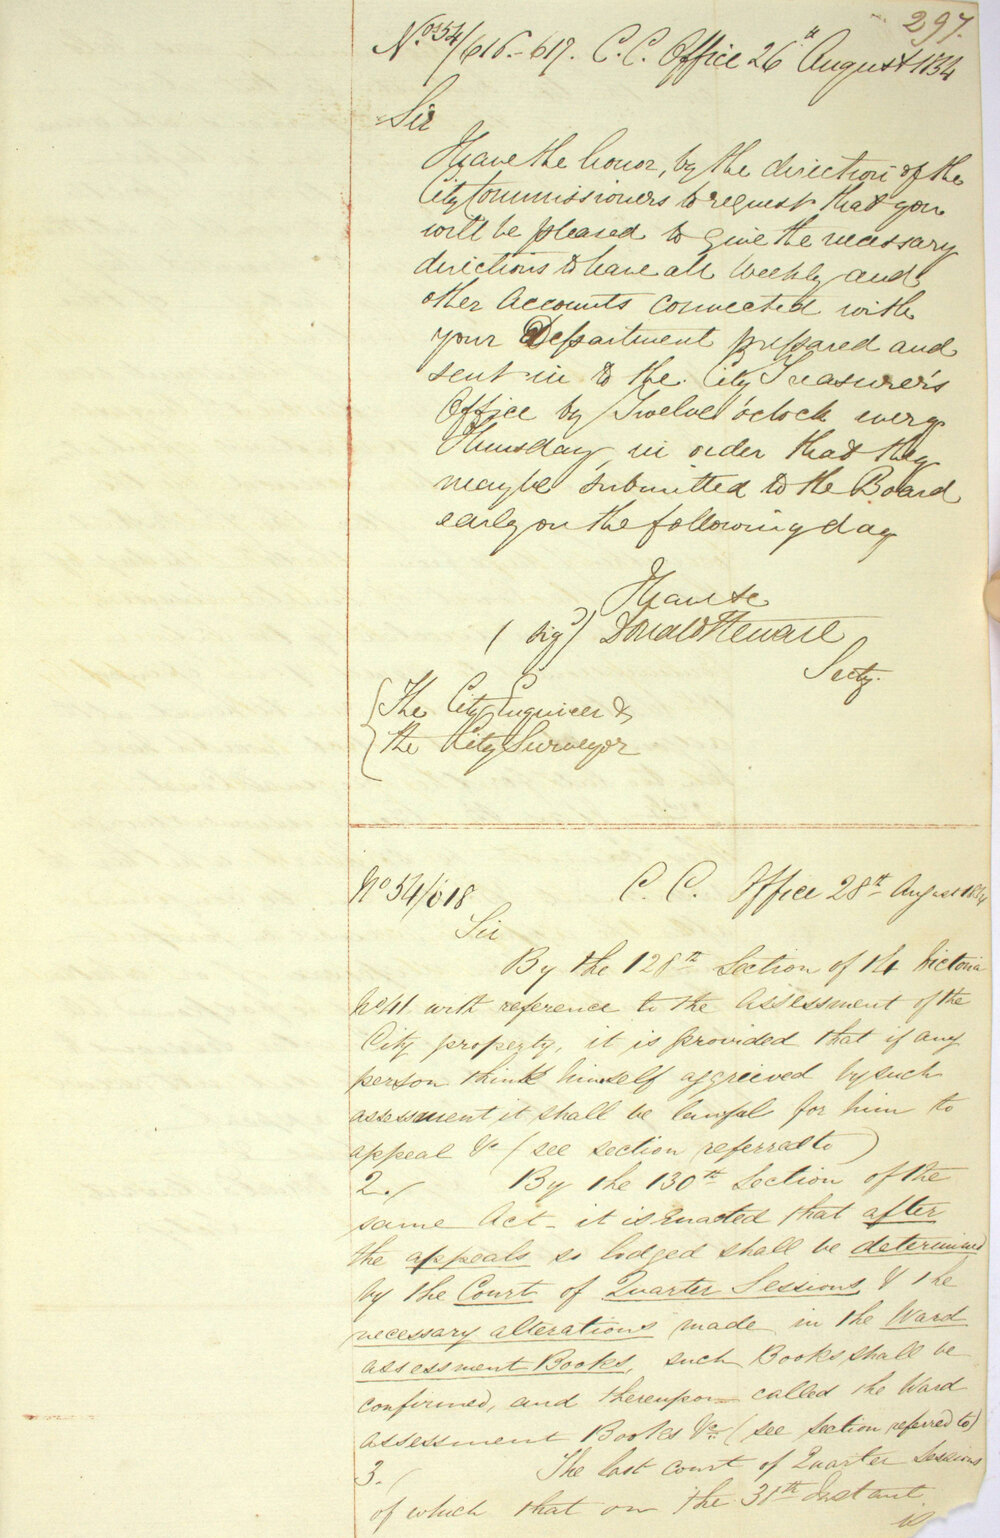 297.
No 54/616-617. C. C. Office 26th August 1854
Sir
I have the honor, by the direction of the
City Commissioners to request that you
will be pleased to give the necessary
directions to have all Weekly and
other Accounts connected with
your Department prepared and
sent in to the City Treasurer's
Office by Twelve o'clock every
Thursday, in order that they
may be submitted to the Board
early on the following day
I have &c
(sigd) Donald Stewart
Secty.
The City Engineer &
the City Surveyor
No 54/618 C. C. Office 28th August 1854
Sir
By the 128th Section of 14 Victoria
No 41 with reference to the Assessment of the
City property, it is provided that if any
person think himself aggrieved by such
assessment it shall be lawful for him to
appeal &c (see section referred to)
2./ By the 130th Section of the
same Act - it is enacted that after
the appeals so lodged shall be determined
by the Court of Quarter Sessions & the
necessary alterations made in the Ward
assessment Books, such Books shall be
confirmed, and thereupon called the Ward
assessment Books &c (see section referred to)
3./ The last court of Quarter Sessions
of which that on the 31st Instant
is